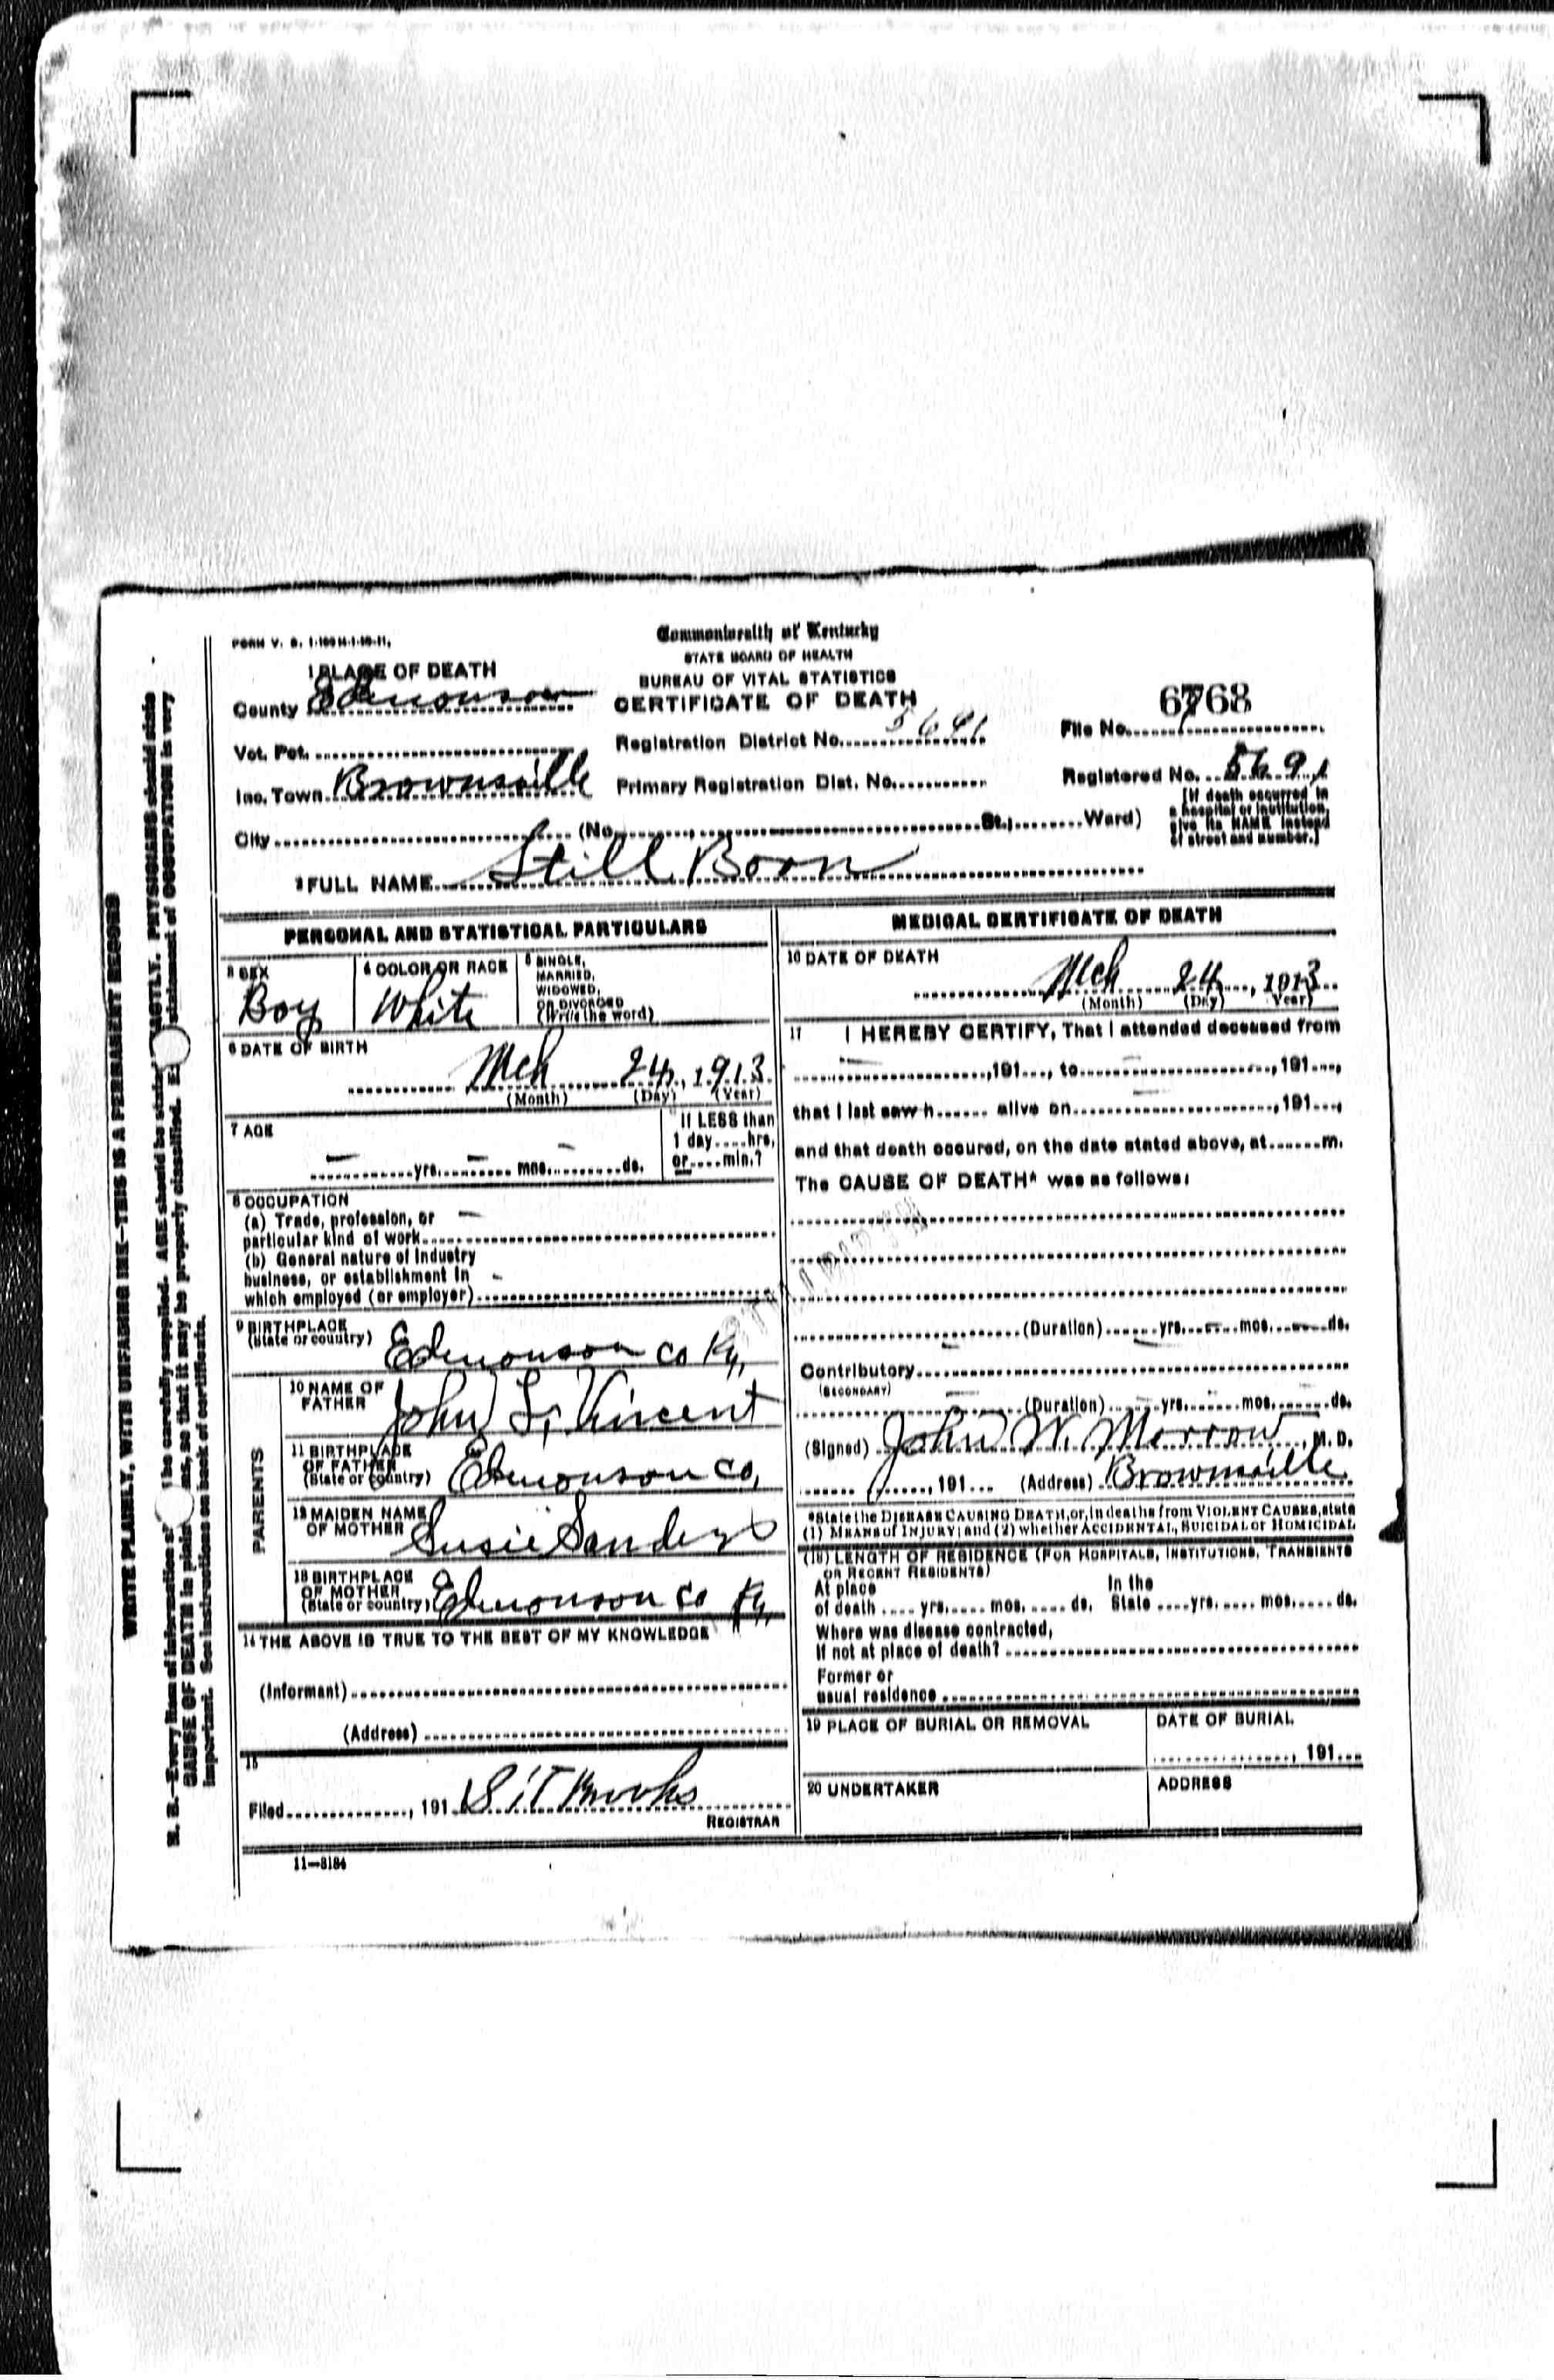 FORM V. S. 1-100 M-1-10-11.
Commonwealth of Kentucky
STATE BOARD OF HEALTH
BUREAU OF VITAL STATISTICS
CERTIFICATE OF DEATH
1 PLACE OF DEATH
County Edmonson
Vot. Pct.
Registration District No. 5691
File No. 6768
Inc. Town Brownsville
Primary Registration Dist. No.
Registered No. 5691
City (No. St.; Ward)
[If death occurred in
a hospital or institution,
give its NAME instead
of street and number.]
2 FULL NAME Still Boon
PERSONAL AND STATISTICAL PARTICULARS
3 SEX
Boy
4 COLOR OR RACE
White
5 SINGLE,
MARRIED,
WIDOWED,
OR DIVORCED
(Write the word)
6 DATE OF BIRTH
Mch 24, 1913
(Month) (Day) (Year)
7 AGE
— yrs. — mos. — ds.
If LESS than
1 day....hrs.
or....min.?
8 OCCUPATION
(a) Trade, profession, or —
particular kind of work
(b) General nature of industry
business, or establishment in -
which employed (or employer)
9 BIRTHPLACE
(State or country) Edmonson co Ky,
PARENTS
10 NAME OF
FATHER John L, Vincent
11 BIRTHPLACE
OF FATHER
(State or country) Edmonson co,
12 MAIDEN NAME
OF MOTHER Susie Sanders
13 BIRTHPLACE
OF MOTHER
(State or country) Edmonson co Ky,
14 THE ABOVE IS TRUE TO THE BEST OF MY KNOWLEDGE
(Informant)
(Address)
15
Filed , 191 Brooks
REGISTRAR
11—3184
MEDICAL CERTIFICATE OF DEATH
16 DATE OF DEATH
Mch 24, 1913
(Month) (Day) (Year)
17 I HEREBY CERTIFY, That I attended deceased from
, 191..., to , 191...,
that I last saw h...... alive on , 191...,
and that death occured, on the date stated above, at.......m.
The CAUSE OF DEATH* was as follows:
(Duration) yrs. mos. ds.
Contributory
(SECONDARY)
(Duration) yrs. mos. ds.
(Signed) John W. Merrow, M. D.
, 191... (Address) Brownsville
*State the DISEASE CAUSING DEATH, or, in deaths from VIOLENT CAUSES, state
(1) MEANS of INJURY; and (2) whether ACCIDENTAL, SUICIDAL or HOMICIDAL
(18) LENGTH OF RESIDENCE (FOR HOSPITALS, INSTITUTIONS, TRANSIENTS
OR RECENT RESIDENTS)
At place In the
of death .... yrs. .... mos. .... ds. State .... yrs. .... mos. .... ds.
Where was disease contracted,
if not at place of death?
Former or
usual residence
19 PLACE OF BURIAL OR REMOVAL
DATE OF BURIAL
, 191...
20 UNDERTAKER
ADDRESS
WRITE PLAINLY, WITH UNFADING INK—THIS IS A PERMANENT RECORD
N. B.—Every item of information should be carefully supplied. AGE should be stated EXACTLY. PHYSICIANS should state
CAUSE OF DEATH in plain terms, so that it may be properly classified. Exact statement of OCCUPATION is very
important. See instructions on back of certificate.